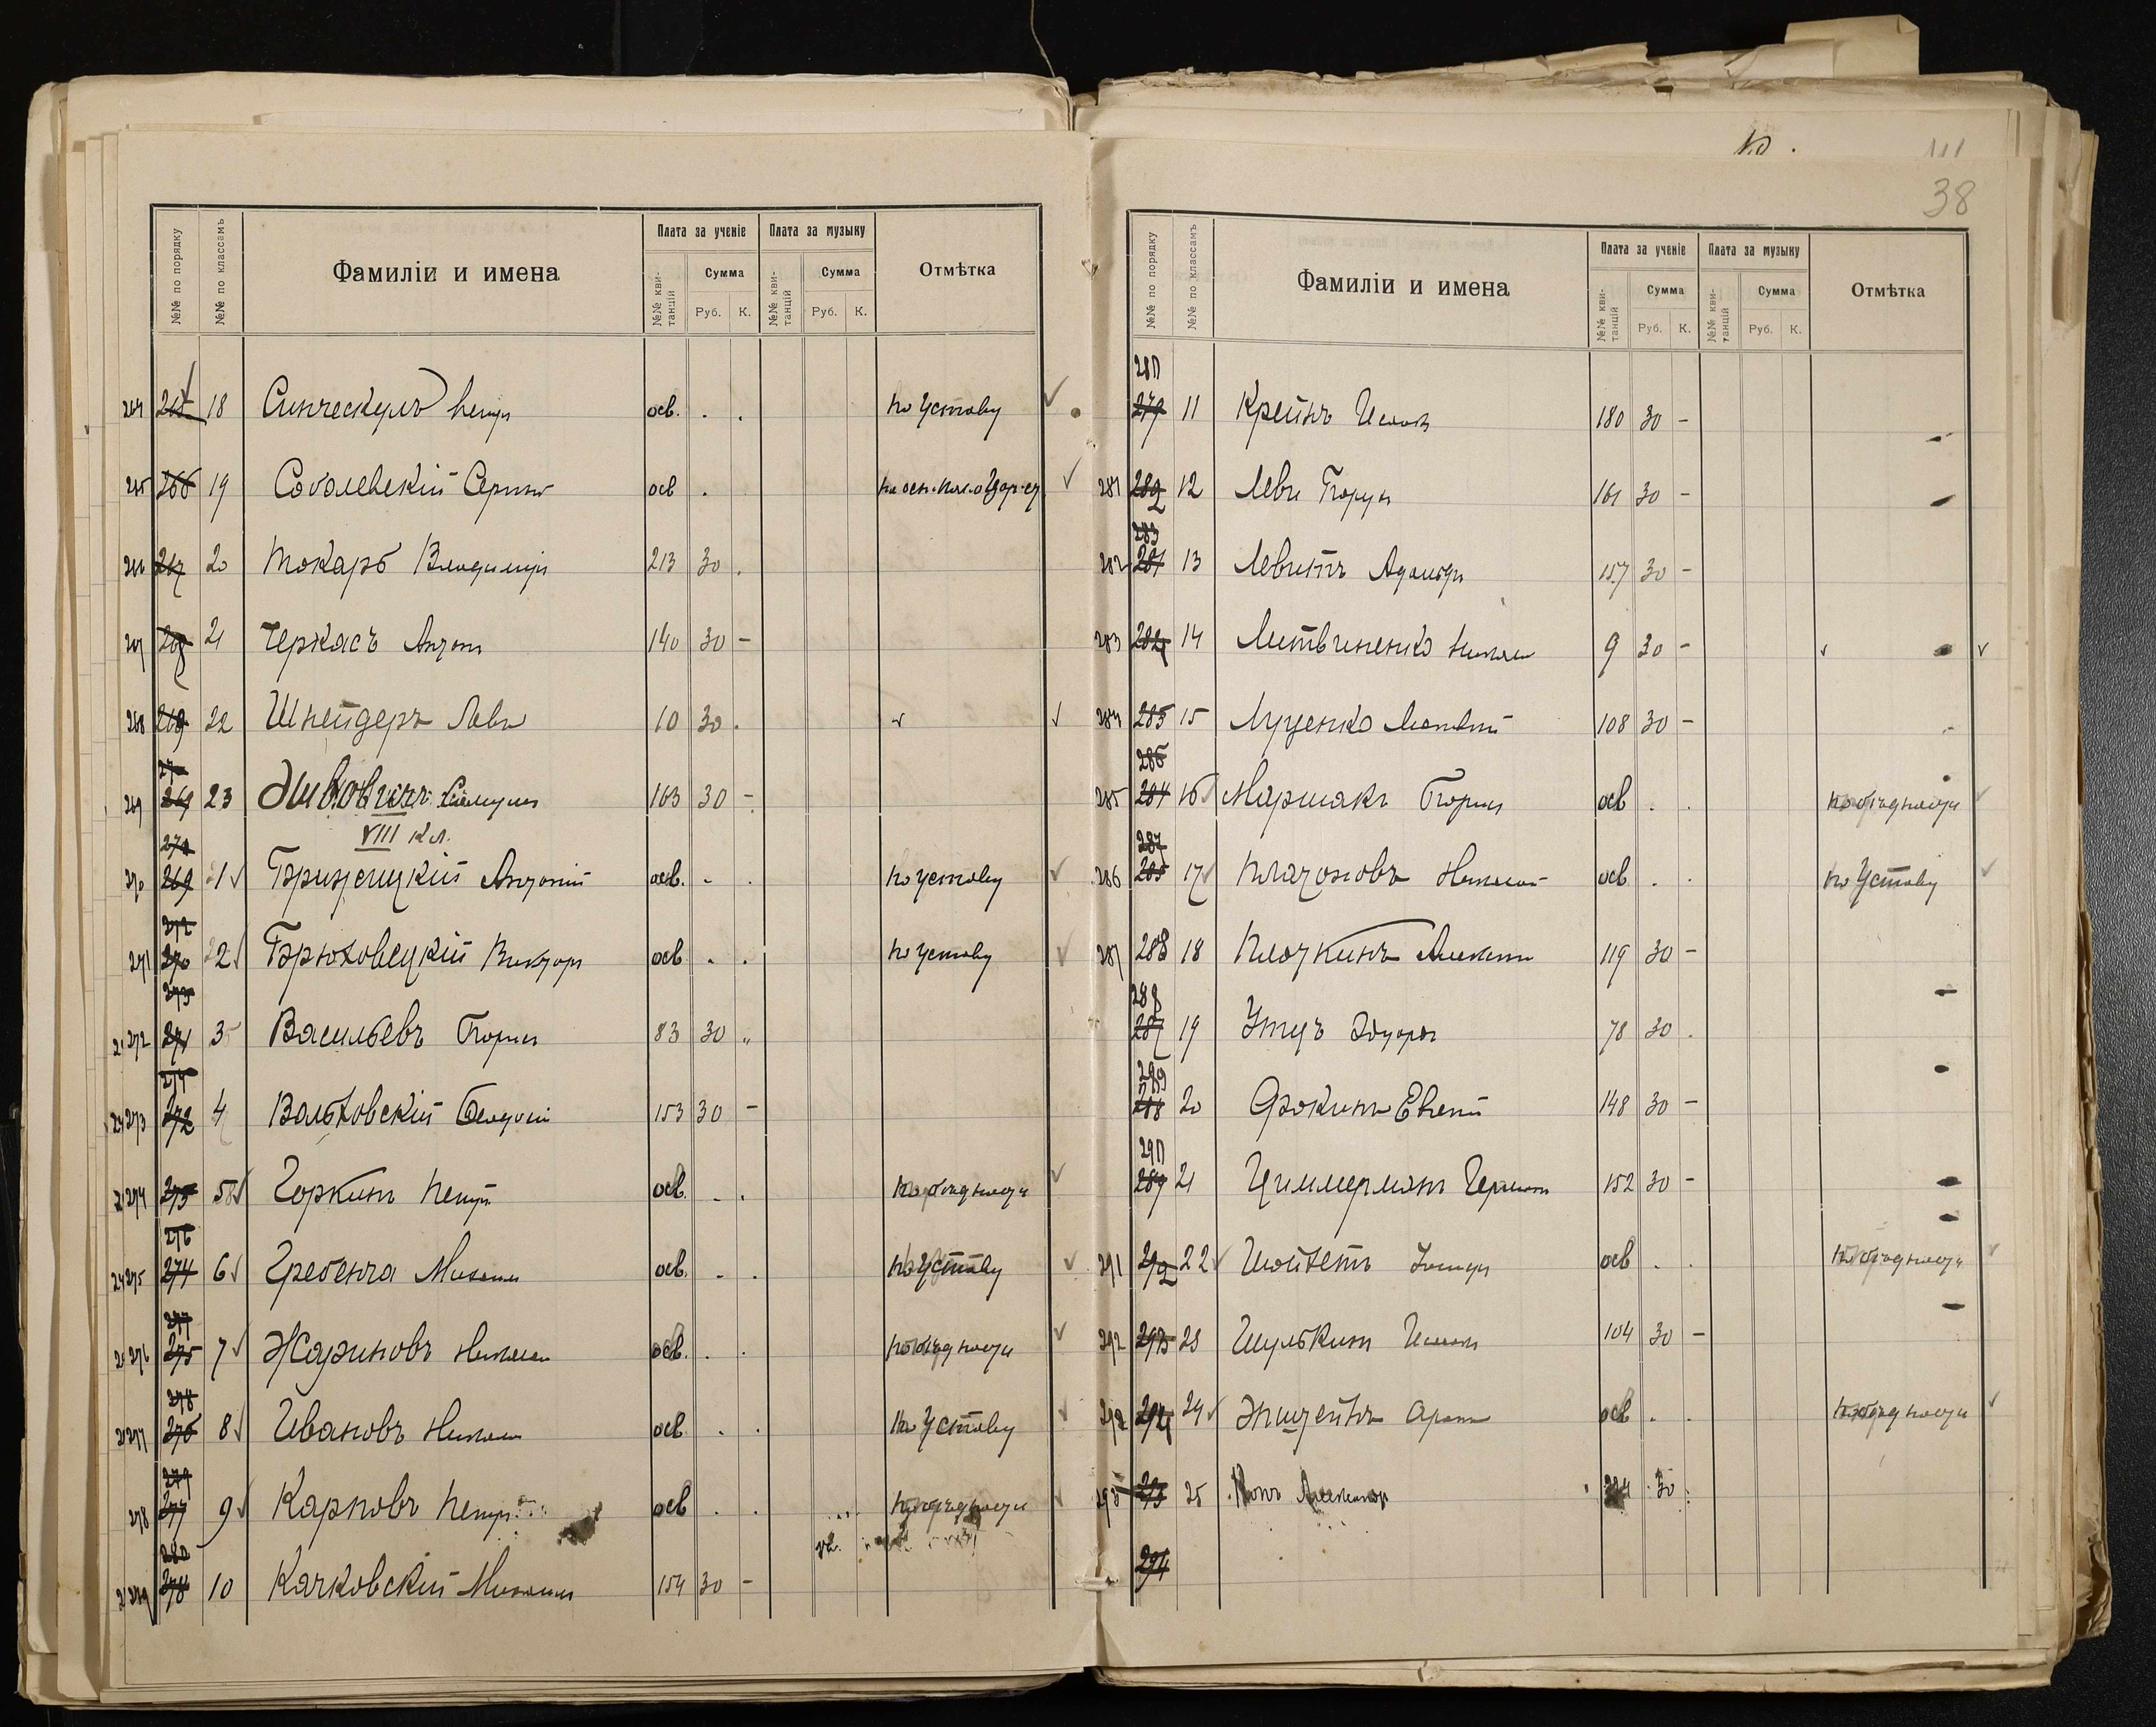 38
№№ по порядку №№ по классамъ Фамиліи и имена Плата за ученіе Плата за музыку Отмѣтка
№№ квитанцій Сумма №№ квитанцій Сумма
Руб. К. Руб. К.
264 265 18 Синческулъ Петръ осв. . . по Уставу
265 266 19 Соболевскій Сергѣй осв .
266 267 20 Токарь Владиміръ 213 30 .
267 268 21 Черкасъ Антонъ 140 30 -
268 269 22 Шнейдеръ Левъ 10 30 .
270
269 269 23 163 30 -
VIII кл.
270 269 1 Бржезицкій Антоній осв. - . по уставу
272
271 270 2 Брюховецкій Викторъ осв . . по уставу
273
272 271 3 Васильевъ Борисъ 83 30 "
274
273 272 4 Вольховскій Ѳеодосій 153 30 -
274 275 5 Горкинъ Петръ осв. - . по бѣдности
276
275 274 6 Гребенча Михаилъ осв. - . по Уставу
277
276 275 7 Жариновъ Николай осв. . . по бѣдности
278
277 276 8 Ивановъ Николай осв. . . по Уставу
279
278 277 9 Карповъ Петръ осв . . по бѣдности
280
279 278 10 Качковскій Михаилъ 154 30 -
№№ по порядку №№ по классамъ Фамиліи и имена Плата за ученіе Плата за музыку Отмѣтка
№№ квитанцій Сумма №№ квитанцій Сумма
Руб. К. Руб. К.
280
279 11 Крейнъ Исаакъ 180 30 -
281 282 12 Леви Борухъ 161 30 -
283
282 281 13 Левитъ Адольфъ 157 30 -
283 284 14 Литвиненко Николай 9 30 -
284 285 15 Луценко 108 30 -
286
285 284 16 Маршакъ Борисъ осв . . по бѣдности
287
286 285 17 Платоновъ Николай осв . . по Уставу
287 288 18 Плоткинъ 119 30 -
288
287 19 Утцъ Эдуардъ 78 30 .
289
288 20 Фокинъ Евгеній 148 30 -
290
289 21 Циммерманъ Германъ 152 30 -
291 292 22 Шойхетъ Іосифъ осв . . по бѣдности
292 293 23 Шулькинъ Исаакъ 104 30 -
294 24 Эпштейнъ Аронъ осв . . по бѣдности
25 Александръ 30
294